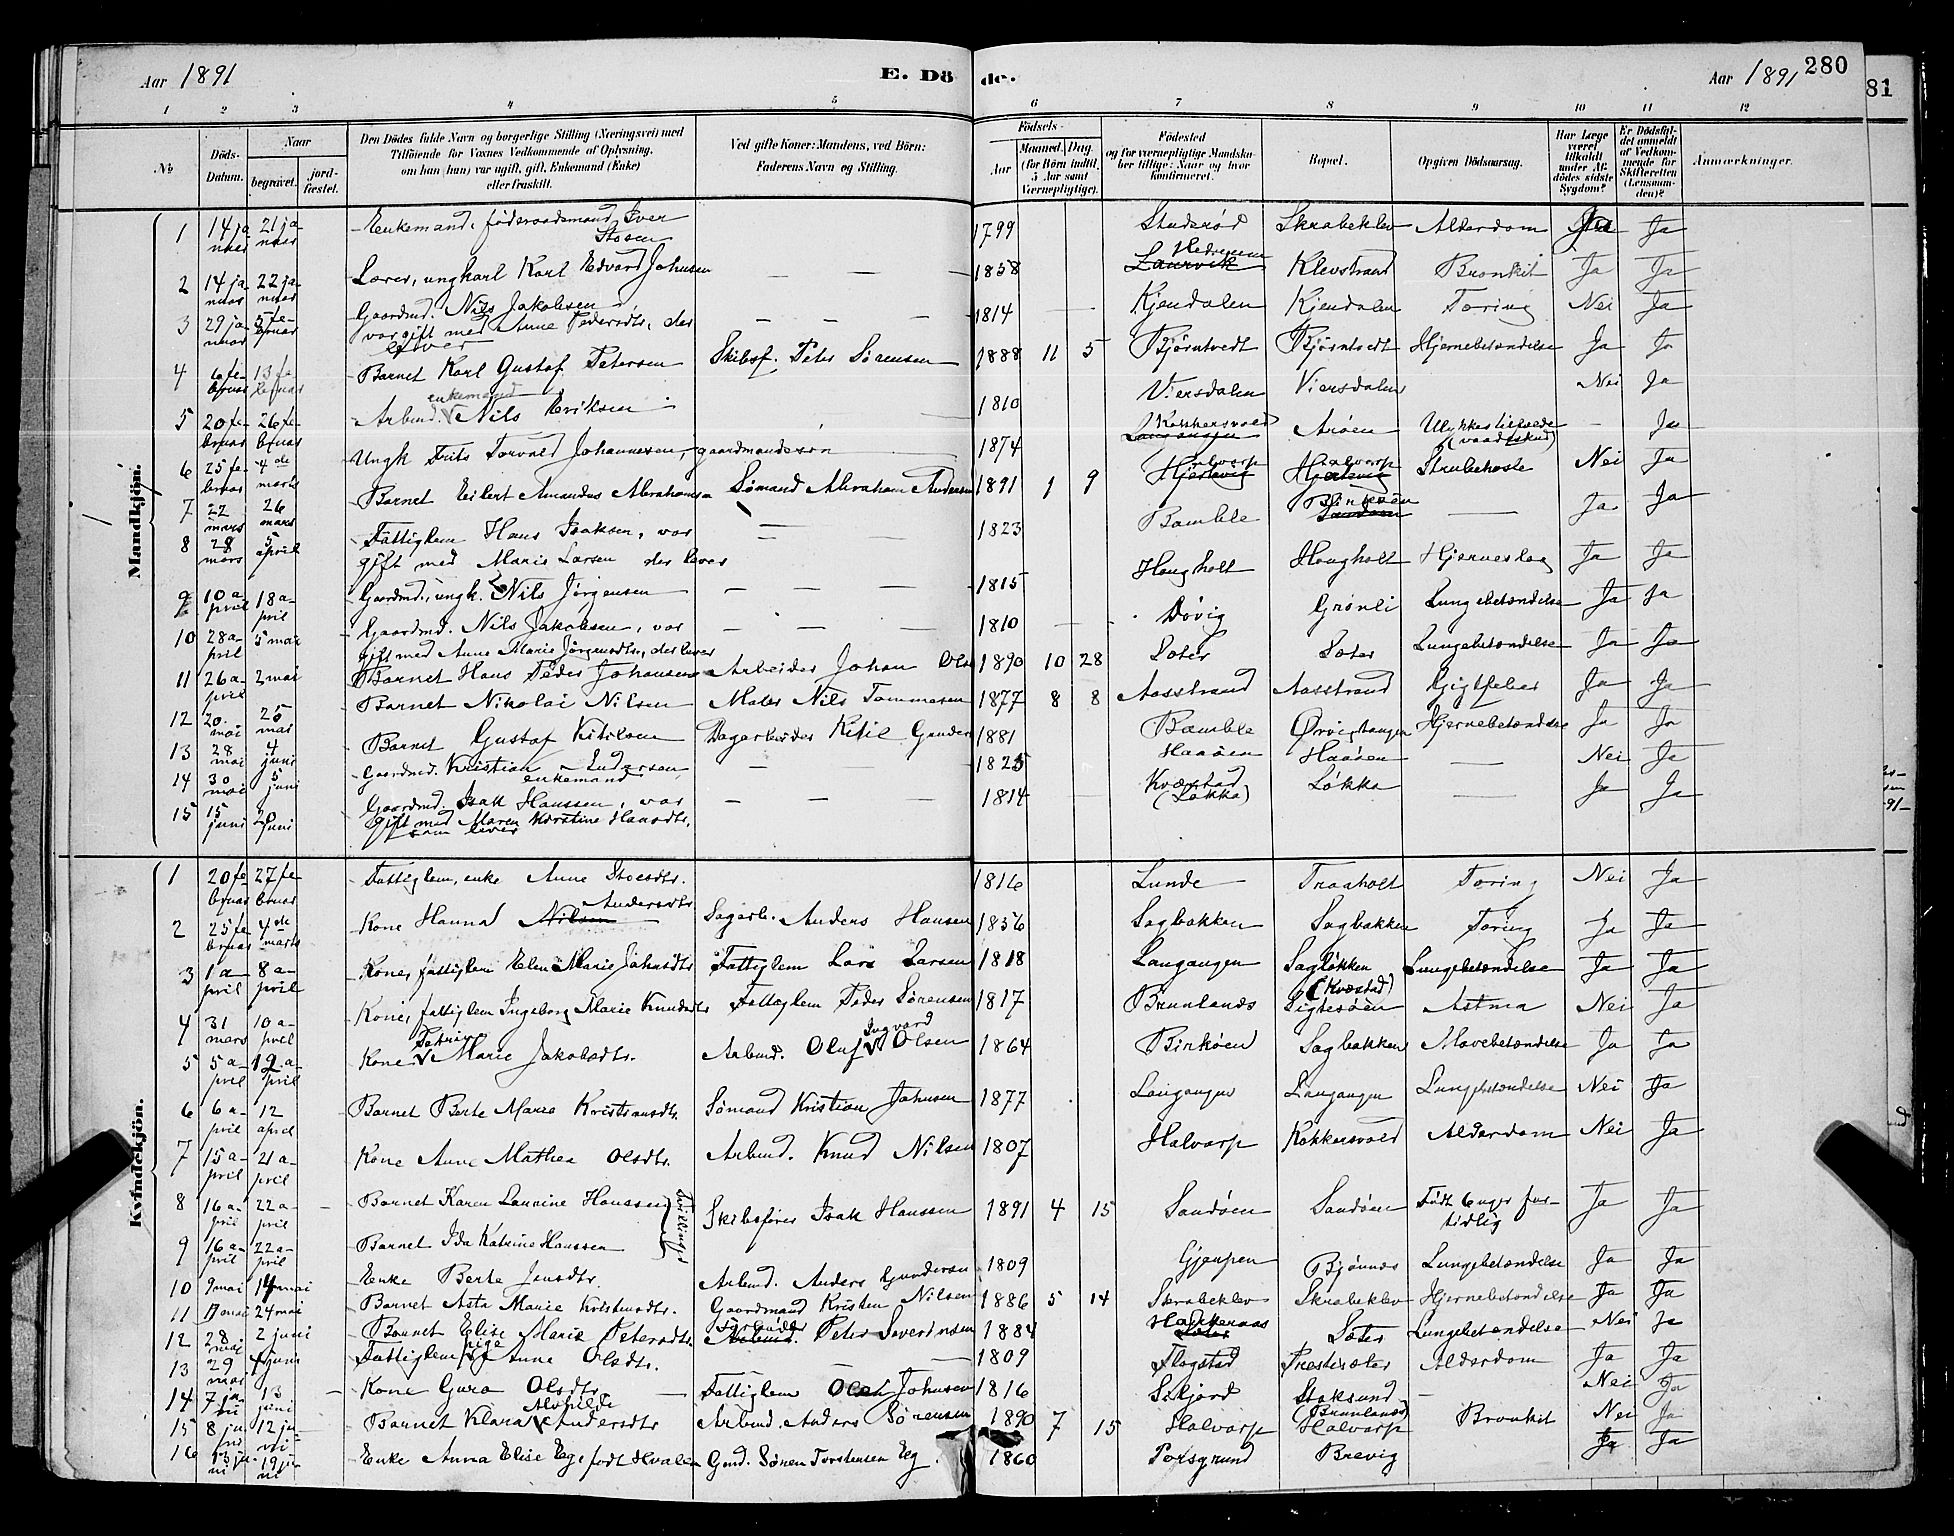 Aar 1891
E. Dö
de.
Aar 1891
280
81
1 2 3 4 5 6 7 8 9 10 11 12
No
Döds-Datum.
Naar
begravet.
jord-fæstet.
Den Dödes fulde Navn og borgerlige Stilling (Næringsvei) med
Tilföiende for Voxnes Vedkommende af Oplysning,
om han (hun) var ugift, gift, Enkemand (Enke)
eller fraskilt.
Ved gifte Koner: Mandens, ved Börn:
Faderens Navn og Stilling.
Födsels-
Aar
Maaned. Dag.
(for Börn indtil
5 Aar samt
Værnepligtige).
Födested
og for værnepligtige Mandska-
ber tillige: Naar og hvor
konfirmeret.
Bopæl.
Opgiven Dödsaarsag.
Har Læge
været
tilkaldt
under Af-
dødes sidste
Sygdom?
Er Dødsfal-
det anmeldt
af Vedkom-
mende for
Skifteretten
(Lensman-
den)?
Anmærkninger.
Mandkjön.
1 14 januar 21 januar Enkemand, föderaadsmand Iver Stosen 1799 Studerød Skrabeklev Alderdom Ja Ja
2 14 januar 22 januar Lærer, ungkarl Karl Edvard Johnsen — — — 1858 Laurvik Hedrum Klevstrand Bronkit Ja Ja
3 29 januar 5 februar Gaardmd. Nils Jakobsen, var gift med Anne Pedersdtr, der lever — — — 1814 Kjendalen Kjendalen Tæring Nei Ja
4 6 februar 13 februar Barnet Karl Gustaf Petersen Skibsf. Peter Sørensen 1888 11 5 Bjørntvedt Bjørntvedt Hjernebetændelse Ja Ja
5 20 februar 26 februar Arbmd. enkemand Nils Eriksen 1810 Viersdalen Viersdalen Nei Ja
6 25 februar 4de marts Ungk Frits Torvald Johannessen, gaardmandssøn 1874 Langangen Kokkersvold Arøen Ulykkestilfælde (vaadeskud) — Ja
7 22 mars 26 mars Barnet Eilert Amandus Abrahamsen Sømand Abraham Andersen 1891 1 9 Hjertevig Halvarp Hjertevig Halvarp Strubehoste Nei Ja
8 28 mars 5 april Fattiglem Hans Isaksen, var gift med Maria Larsen der lever — — 1823 Bamble Sandøen Birkøen — Ja Ja
9 10 april 18 april Gaardmd., ungk. Nils Jørgensen — — — 1815 Hougholt Hougholt Hjerneslag Ja Ja
10 28 april 5 mai Gaardmd. Nils Jakobsen, var gift med Anne Marie Jörgensdtr, der lever — — — 1810 Døvig Grønli Lungebetændelse Ja Ja
11 26 april 2 mai Barnet Hans Peder Johansen Arbeider Johan Olsen 1890 10 28 Sæter Sæter Lungebetændelse Ja Ja
12 20. mai 25 mai Barnet Nikolai Nilsen Maler Nils Tommesen 1877 8 8 Aasstrand Aasstrand Gigtfeber Ja Ja
13 28 mai 4 juni Barnet Gustaf Kitilsen Dagarbeider Kitil Gunders 1881 Bamble Ørvigtangen Hjernebetændelse Ja Ja
14 30 mai 5 juni Gaardmd. Kristian Endersen, enkemand — — 1825 Haaöen Haaöen — Nei Ja
15 15 juni 20 juni Gaardmd. Isak Hanssen, var gift med Maren Kirstine Hansdtr. som lever — — — 1814 Kvæstad (Løkka) Løkka — Ja Ja
Kvindekjön.
1 20 februar 27 februar Fattiglem, enke Anne Stoesdtr. 1816 Lunde Traaholt Tæring Nei Ja
2 25 februar 4de marts Kone Hanna Nilsen Andersdtr Sagarb. Anders Hansen 1856 Sagbakken Sagbakken Tæring Ja Ja
3 1 april 8 april Kone, fattiglem Elen Marie Johnsdtr Fattiglem Lars Larsen 1818 Langangen Sagløkken (Kvæstad) Lungebetændelse Ja Ja
4 31 mars 10 april Kone, fattiglem Ingeborg Marie Knudsdtr Fattiglem Peder Sørensen 1817 Brunlanæs Sigtesøen Astma Nei Ja
5 5 april 12 april Kone Petrine Marie Jakobsdtr. Arbmd. Oluf Ingvard Olsen 1864 Birkøen Sagbakken Mavebetændelse Ja Ja
6 6 april 12 april Barnet Berte Maria Kristiansdtr. Sømand Kristian Johnsen 1877 Langangen Langangen Lungebetændelse Nei Ja
7 15 april 21 april Kone Anne Mathea Olsdtr. Arbmd. Knud Nilsen 1807 Halvarp Kokkersvold Alderdom Nei Ja
8 16 april 22 april Barnet Karen Laurine Hanssen Tvillinger Skibsfører Isak Hanssen 1891 4 15 Sandøen Sandøen Født 6 uger for tidlig Ja Ja
9 16 april 22 april Barnet Ida Katrine Hanssen
10 9 mai 14 mai Enke Berte Jensdtr. Arbmd. Anders Gundersen 1809 Gjerpen Bjønnæs Lungebetændelse Ja Ja
11 17 mai 24 mai Barnet Asta Marie Kristensdtr. Gaardmand Kristen Nilsen 1886 5 14 Skrabeklev Skrabeklev Hjernebetændelse Ja Ja
12 28 mai 2 juni Barnet Elise Marie Petersdtr. Arbmd. Peter Severinsen 1884 Sæter Sæter Lungebetændelse Nei Ja
13 29 mai juni Fattiglem pige Anne Olsdtr. — — — 1809 Flogstad Præstesæter Alderdom Ja Ja
14 7 juni 13 juni — Kone Guro Olsdtr — Fattiglem Olea Johnsen 1816 Siljord Stoksund (Brunlanæs) — Nei Ja
15 8 juni 12 juni Barnet Klara Alvilde Andersdtr Arbmd. Anders Sørensen 1890 7 15 Halvarp Halvarp Bronkit Nei Ja
16 13 juni 19 juni Enke Anna Elise Eg, født Hvalen Gmd. Sören Torstensen Eg. 1860 Porsgrund Brevig Ja Ja